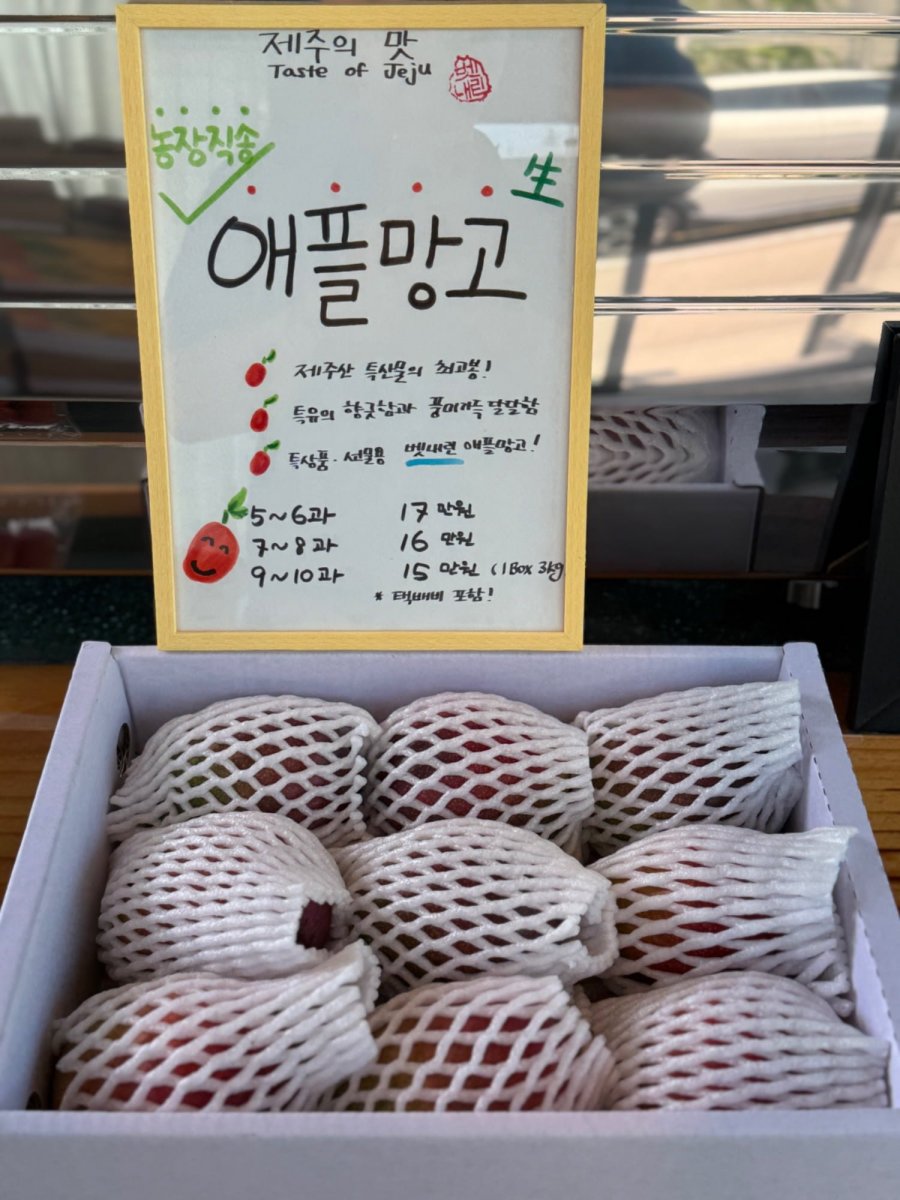 제주의 맛
Taste of Jeju
벳내린
농장직송
生
애플망고
제주산 특산물의 최고봉!
특유의 향긋함과 풍미가득 달달함
특상품·선물용 벳내린 애플망고!
5~6과 17만원
7~8과 16만원
9~10과 15만원 (1Box 3kg)
* 택배비 포함!